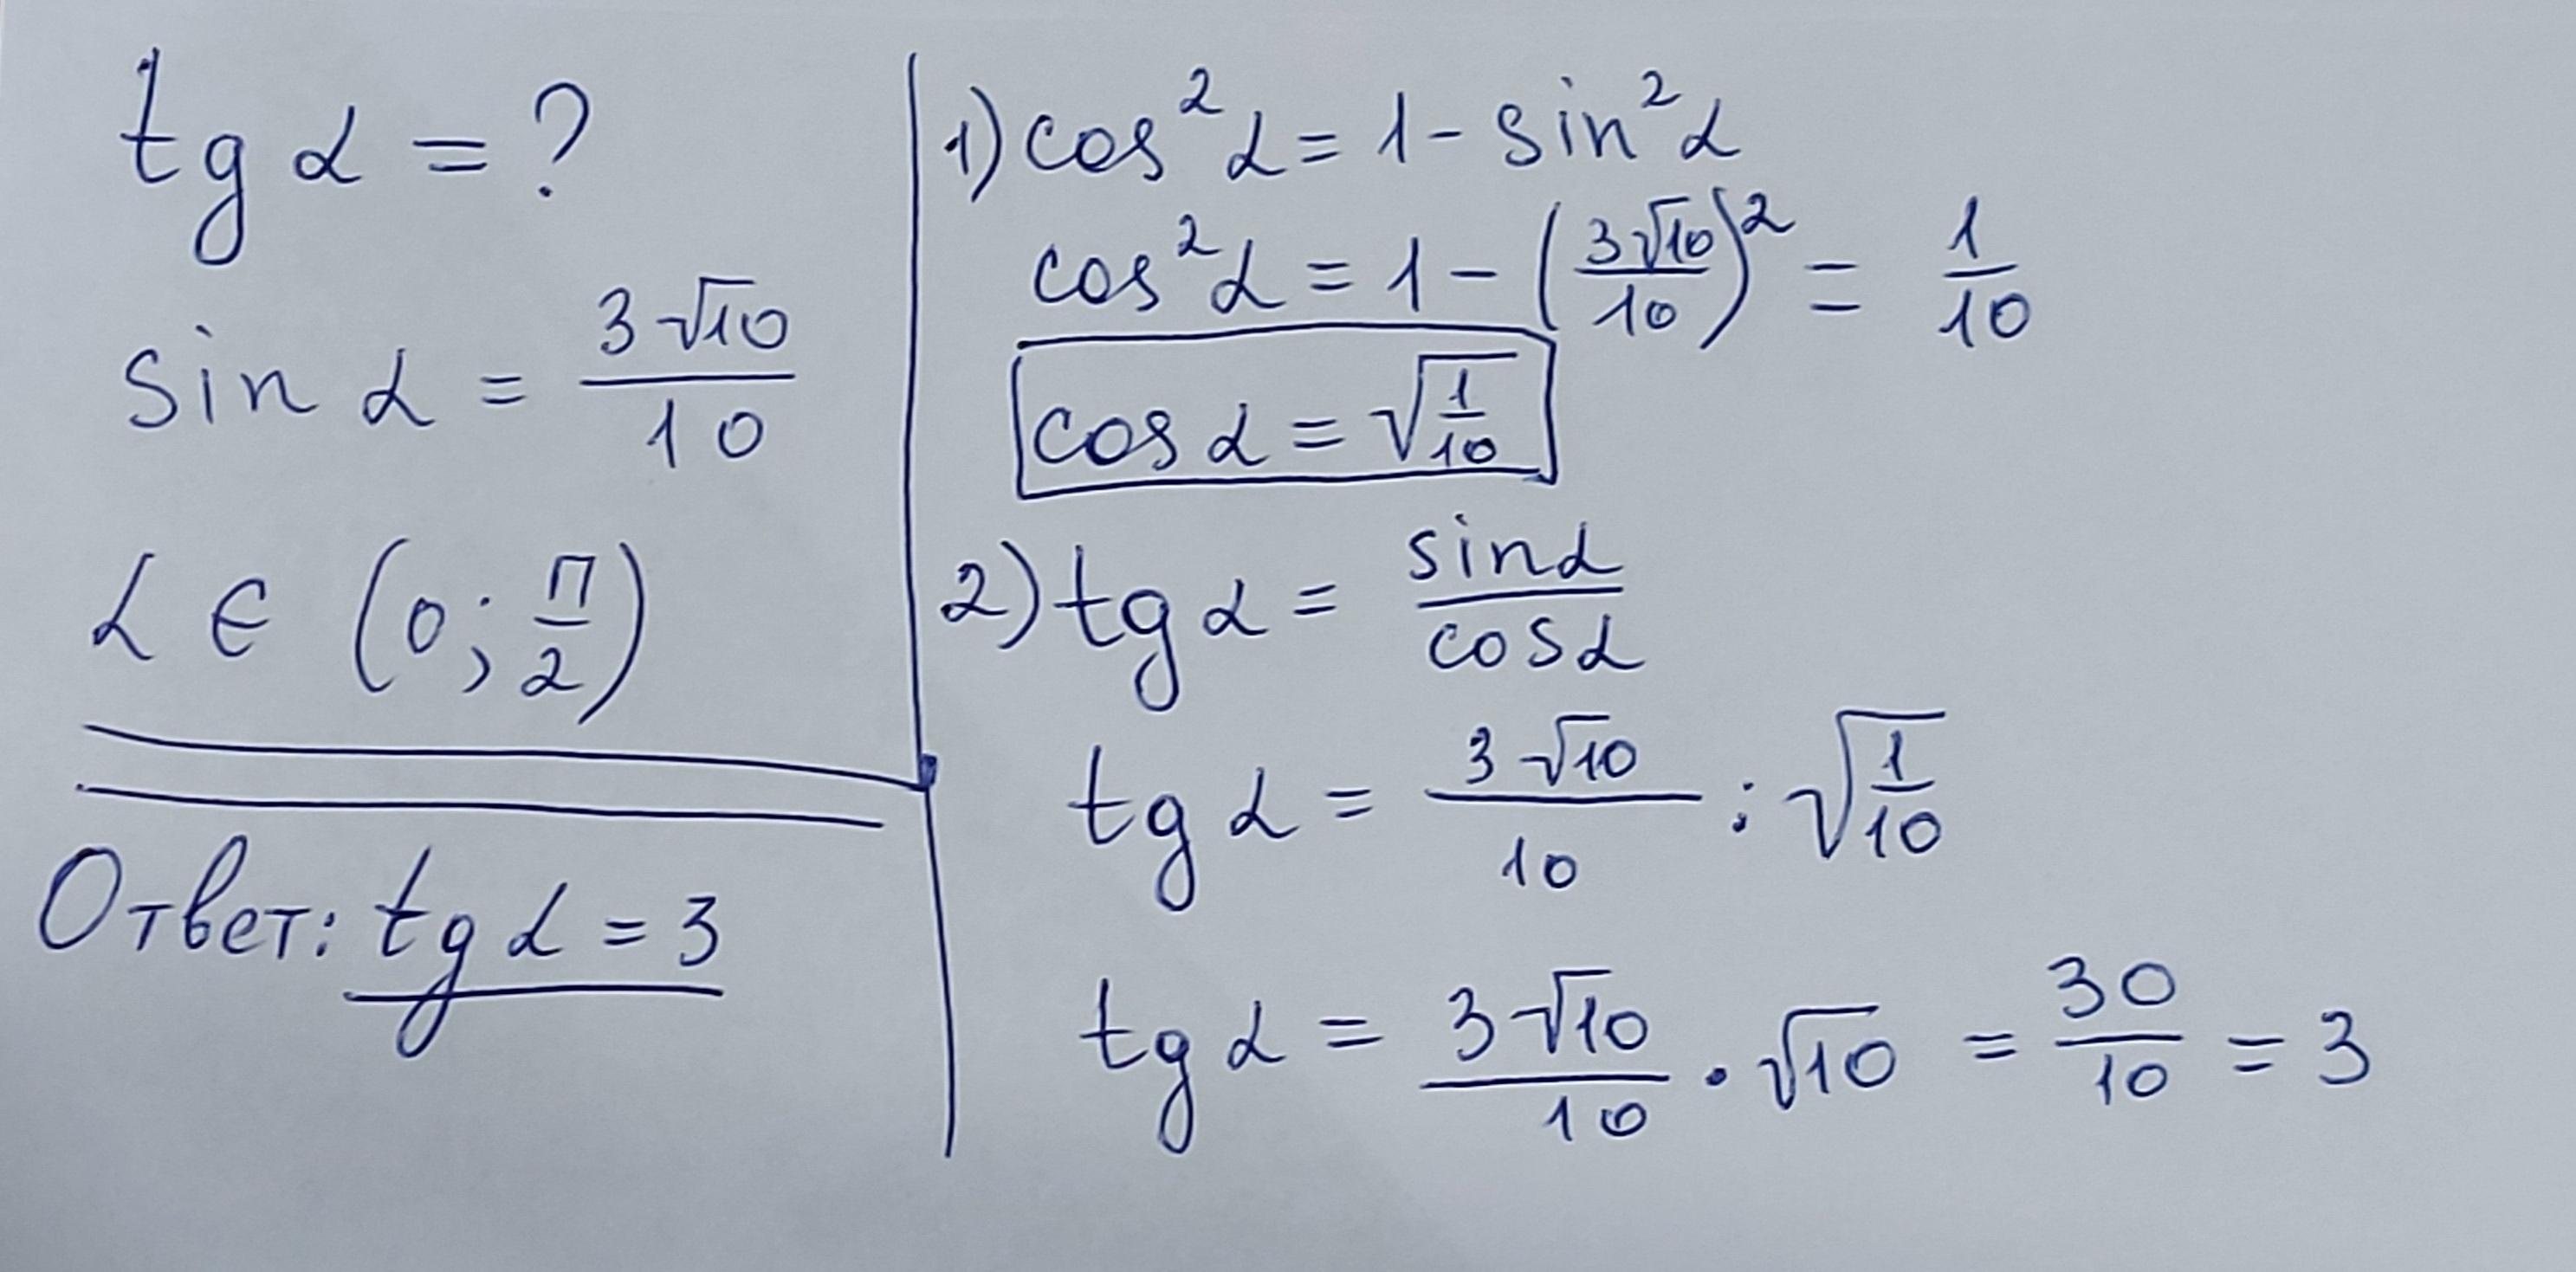 tg α = ?
sin α = 3√10/10
α ∈ (0; π/2)
Ответ: tg α = 3
1) cos²α = 1 - sin²α
cos²α = 1 - (3√10/10)² = 1/10
cos α = √(1/10)
2) tg α = sinα/cosα
tg α = 3√10/10 : √(1/10)
tg α = 3√10/10 · √10 = 30/10 = 3